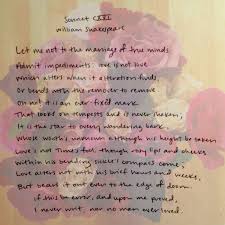 Sonnet CXVI
William Shakespeare
Let me not to the marriage of true minds
Admit impediments. love is not love
which alters when it alteration finds
Or bends with the remover to remove
Oh no! it is an ever-fixed mark
That looks on tempests and is never shaken;
It is the star to every wandering bark,
Whose worth's unknown although his height be taken
Love's not Time's fool, though rosy lips and cheeks
Within his bending sickle's compass come;
Love alters not with his brief hours and weeks,
But bears it out even to the edge of doom.
If this be error, and upon me proved,
I never writ, nor no man ever loved.